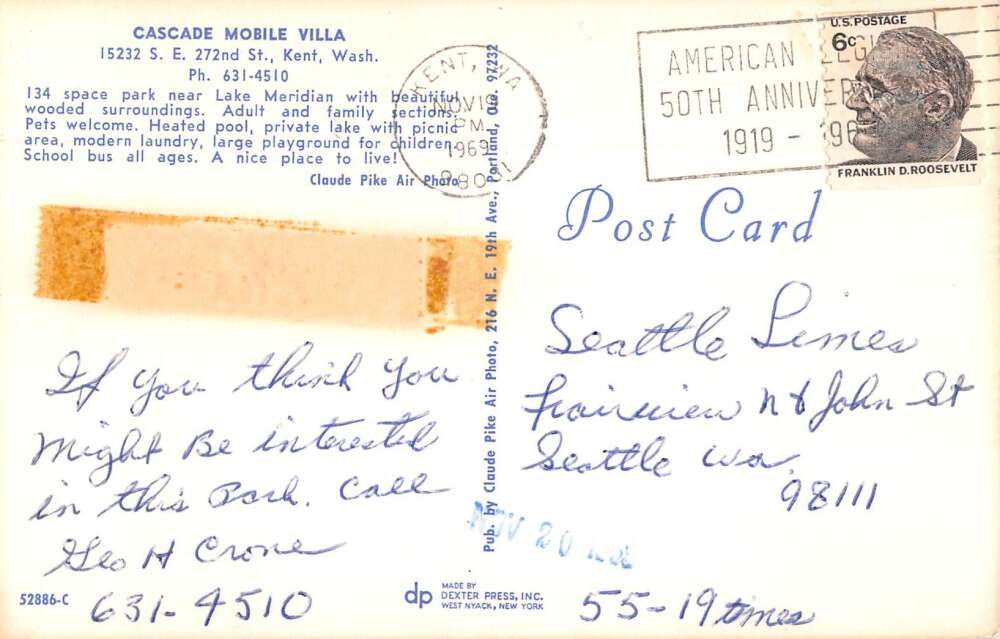 CASCADE MOBILE VILLA
15232 S. E. 272nd St., Kent, Wash.
Ph. 631-4510
134 space park near Lake Meridian with beautiful
wooded surroundings. Adult and family sections.
Pets welcome. Heated pool, private lake with picnic
area, modern laundry, large playground for children.
School bus all ages. A nice place to live!
Claude Pike Air Photo
KENT, WA
NOV 19
PM
1969
98031
AMERICAN LEGION
50TH ANNIVER
1919 - 1969
U.S. POSTAGE
6c
FRANKLIN D. ROOSEVELT
Post Card
Pub. by Claude Pike Air Photo, 216 N. E. 19th Ave., Portland, Ore. 97232
If you think you
might Be interested
in this Park. Call
Geo H Crone
631-4510
Seattle Times
Fairview N & John St
Seattle Wa.
98111
NOV 20
55-19 times
52886-C
dp
MADE BY
DEXTER PRESS, INC.
WEST NYACK, NEW YORK